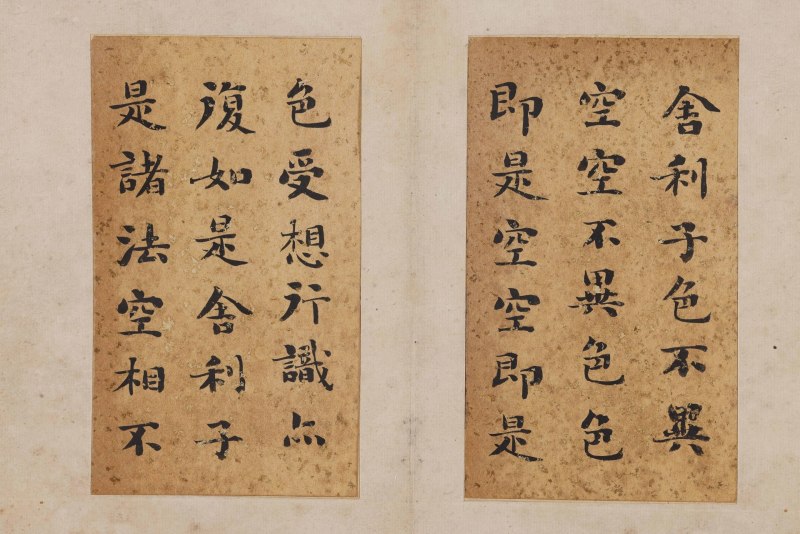 舍利子色不異
空空不異色色
即是空空即是
色受想行識亦
復如是舍利子
是諸法空相不